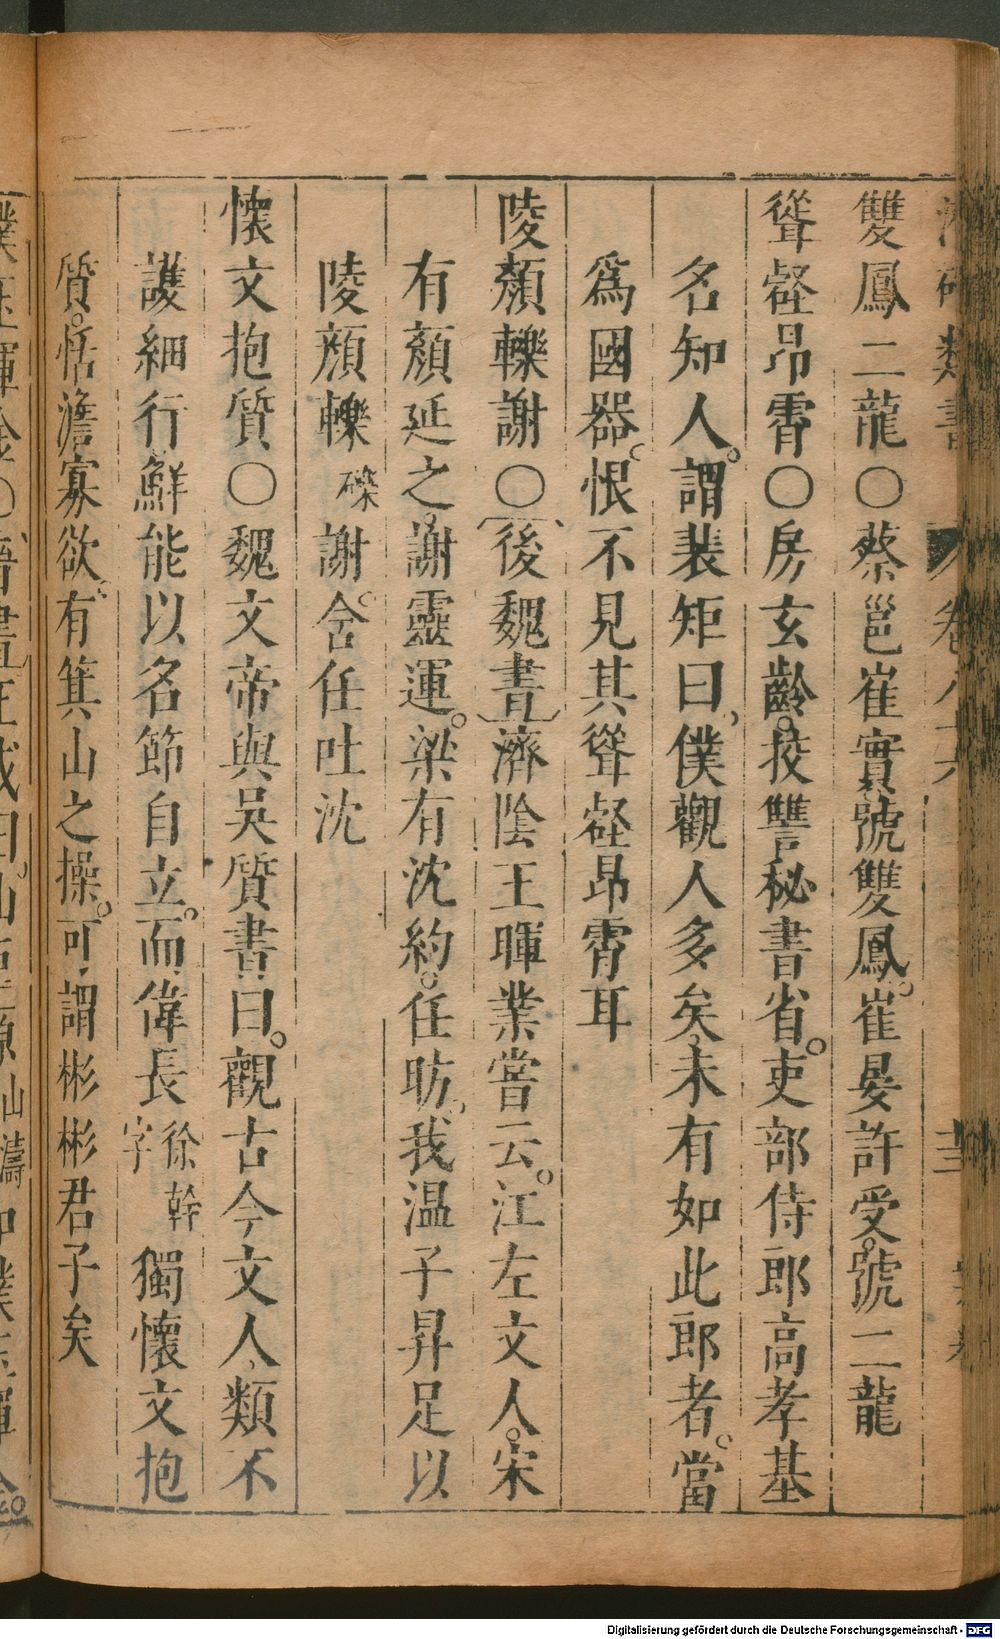 雙鳳二龍○蔡邕崔實號雙鳳。崔晏許受。號二龍
聳壑昂霄○房玄齡。挍讐秘書省。吏部侍郎高孝基
名知人。謂裴矩曰、僕觀人多矣、未有如此郎者。當
爲國器。恨不見其聳壑昂霄耳
陵顏轢謝○後魏書濟陰王暉業嘗云。江左文人。宋
有顏延之、謝靈運。梁有沈約。任昉、我温子昇足以
陵顏轢礫謝。含任吐沈
懷文抱質○魏文帝與吳質書曰。觀古今文人、類不
護細行、鮮能以名節自立。而偉長徐幹字獨懷文抱
質。恬澹寡欲、有箕山之操。可謂彬彬君子矣
Digitalisierung gefördert durch die Deutsche Forschungsgemeinschaft - DFG